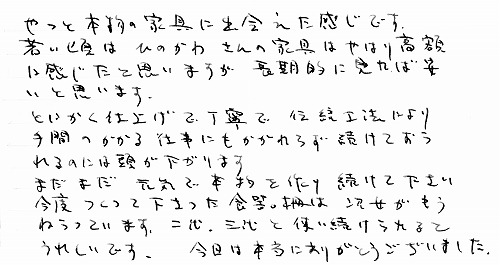 やっと本物の家具に出会えた感じです。
若い頃は ひのかわ さんの家具はやはり高額
に感じたと思いますが 長期的に見れば安
いと思います。
とにかく仕上げで、丁寧で、伝統工法により
手間のかかる仕事にもかかわらず 続けておら
れるのには頭が下がります
まだまだ 元気で 本物を作り 続けて下さい
今度つくって下さった食器棚は 娘がもう
ねらっています。二代、三代と使い続けられると
うれしいです。 今日は本当にありがとうございました。